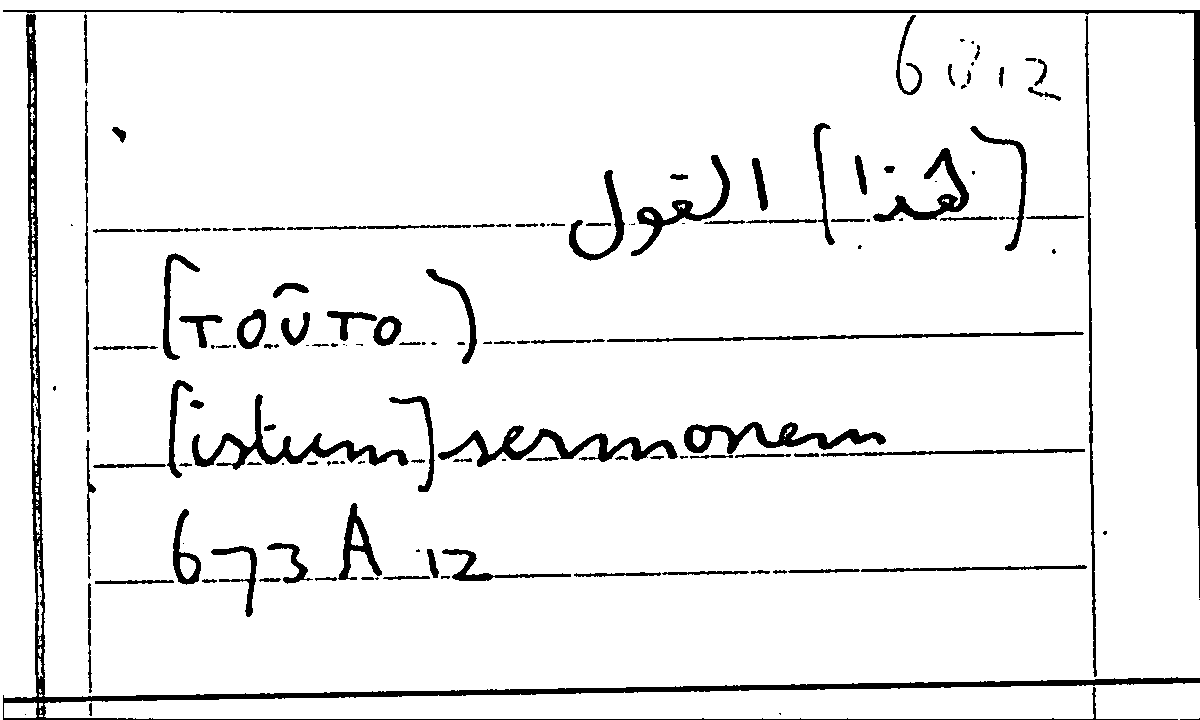 [هذا] القول
[τοῦτο]
[istum] sermonem
673 A 12